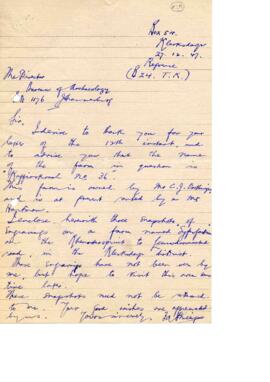 Box 54.
Klerksdorp
27.12.47.
(B 24. T.K.)
The Director
of Archaeology
Johannesburg
Sir.
I desire to thank you for your
letter of the 12th instant, and
to advise you that the name
of the farm in question is
No. 26".
This farm is owned by Mr C.J.
and is at present rented by a Mr
I enclose herewith three snapshots of
engravings on a farm named
on the Klerksdorp to
road, in the Klerksdorp District.
These engravings have not been seen by
me, but hope to visit this area some
time later.
These snapshots need not be returned
to me. Your good wishes are appreciated
by us. Yours sincerely,